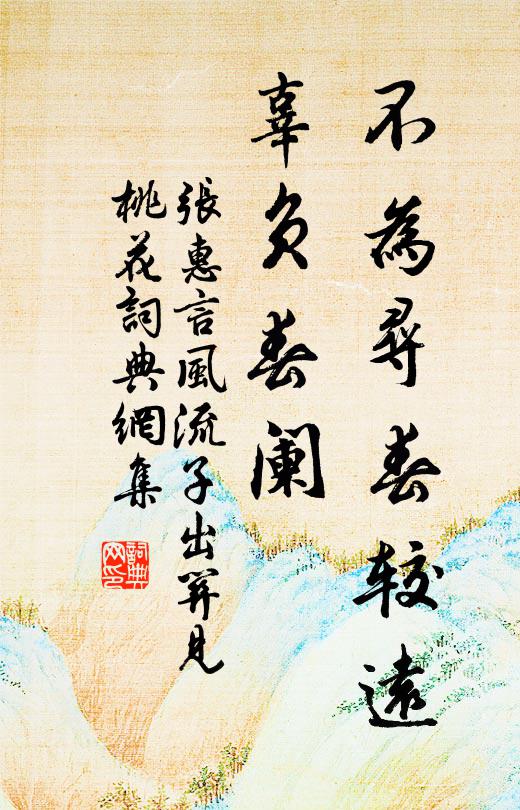 不為尋春較遠
辜负春阑
張惠言風流子出關見
桃花詞典網集
詞典
网印